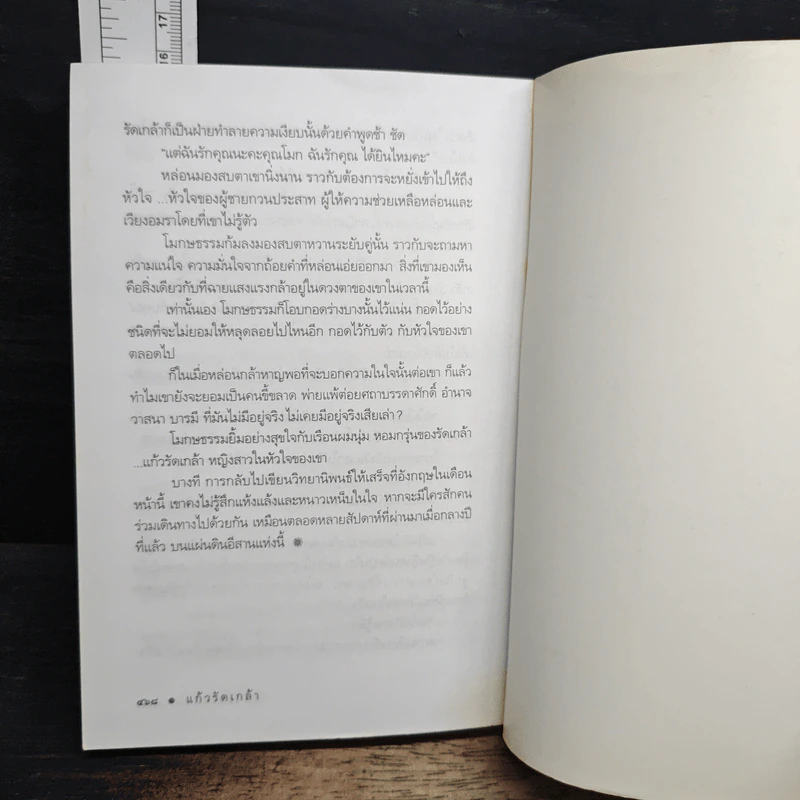 17
16
รัดเกล้าก็เป็นฝ่ายทำลายความเงียบนั้นด้วยคำพูดช้า ชัด
"แต่ฉันรักคุณนะคะคุณโมก ฉันรักคุณ ได้ยินไหมคะ"
หล่อนมองสบตาเขานิ่งนาน ราวกับต้องการจะหยั่งเข้าไปให้ถึง
หัวใจ ...หัวใจของผู้ชายกวนประสาท ผู้ให้ความช่วยเหลือหล่อนและ
เวียงอมราโดยที่เขาไม่รู้ตัว
โมกษธรรมก้มลงมองสบตาหวานระยับคู่นั้น ราวกับจะถามหา
ความแน่ใจ ความมั่นใจจากถ้อยคำที่หล่อนเอ่ยออกมา สิ่งที่เขามองเห็น
คือสิ่งเดียวกับที่ฉายแสงแรงกล้าอยู่ในดวงตาของเขาในเวลานี้
เท่านั้นเอง โมกษธรรมก็โอบกอดร่างบางนั้นไว้แน่น กอดไว้อย่าง
ชนิดที่จะไม่ยอมให้หลุดลอยไปไหนอีก กอดไว้กับตัว กับหัวใจของเขา
ตลอดไป
ก็ในเมื่อหล่อนกล้าหาญพอที่จะบอกความในใจนั้นต่อเขา ก็แล้ว
ทำไมเขายังจะยอมเป็นคนขี้ขลาด พ่ายแพ้ต่อยศถาบรรดาศักดิ์ อำนาจ
วาสนา บารมี ที่มันไม่มีอยู่จริง ไม่เคยมีอยู่จริงเสียเล่า?
โมกษธรรมยิ้มอย่างสุขใจกับเรือนผมนุ่ม หอมกรุ่นของรัดเกล้า
...แก้วรัดเกล้า หญิงสาวในหัวใจของเขา
บางที การกลับไปเขียนวิทยานิพนธ์ให้เสร็จที่อังกฤษในเดือน
หน้านี้ เขาคงไม่รู้สึกแห้งแล้งและหนาวเหน็บในใจ หากจะมีใครสักคน
ร่วมเดินทางไปด้วยกัน เหมือนตลอดหลายสัปดาห์ที่ผ่านมาเมื่อกลางปี
ที่แล้ว บนแผ่นดินอีสานแห่งนี้
๔๖๘ แก้วรัดเกล้า